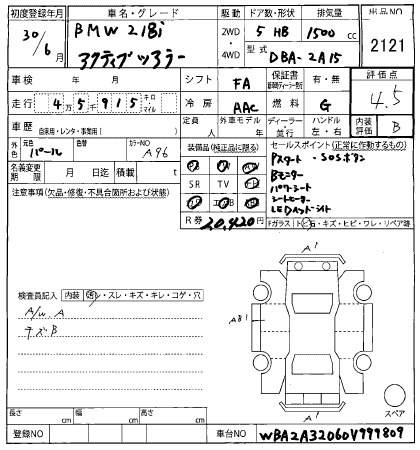 初度登録年月 車名・グレード 駆動 ドア数・形状 排気量 出品NO
30/6月 BMW 218i 2WD 5 HB 1500 cc 2121
アクティブツアラー 4WD 型式 DBA-2A15
車検 年 月 シフト FA 保証書 新車時ディーラー発行 有・無 評価点
走行 45,915 キロ・マイル 冷房 AAC 燃料 G 4.5
車歴 自家用・レンタ・事業用( ) 定員 人 外車モデル 年 ディーラー 並行 ハンドル 左・右 内装評価 B
外色 元色 パール 色替 カラーNO A96 装備品(純正品に限る) セールスポイント(正常に作動するもの)
名義変更期限 月 日迄 積載 t SR TV
Pスタート・SOSボタン
Bモニター
パワーシート
シートヒーター
LEDヘッドライト
注意事項(欠品・修復・不具合箇所および状態)
R券 20,420円 Fガラス ト・石・キズ・ヒビ・ワレ・リペア跡
A1
検査員記入 内装 ・スレ・キズ・キレ・コゲ・穴
A/W.A
テズB
AB1
A1
スペア
長さ cm 幅 cm 高さ cm
登録NO 車台NO WBA2A32060V999809